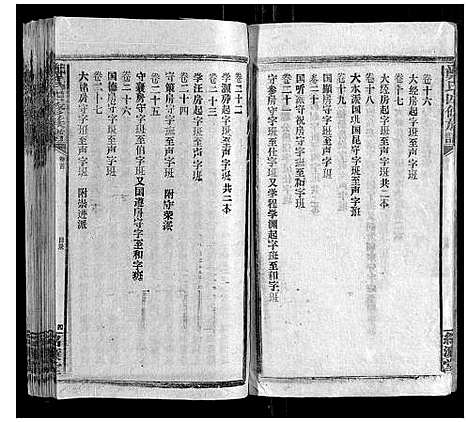 卷十六
大经房起字班至声字班
卷十七
大经房起字班至声字班共二本
卷十八
大水派国珙国昆守字班至声字班
卷十九
国显房守字班至声字班
卷二十
国听派守祝房守字班至和字班
卷二十一
守参房守字班至仕字班又学程学渊起字班至声字班
卷二十二
学渊房起字班至声字班共二本
卷二十三
学汪房起字班至声字班
卷二十四
守策房守字班 附守荣派
卷二十五
守襄房守字班至声字班又国遵房守字班至和字班
卷二十六
国德房守字班至伯字班
卷二十七
大銘房守字班至声字班 附崇进派
卷首
目录
四